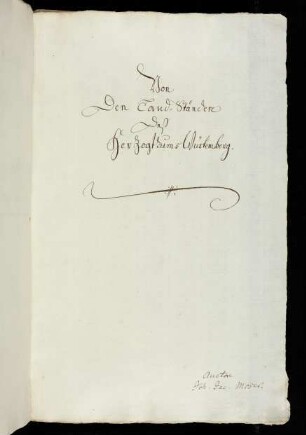 Von
Den Land-Ständen
deß
Herzogthums Würtemberg.
Auctor
Joh. Jac. Moser.